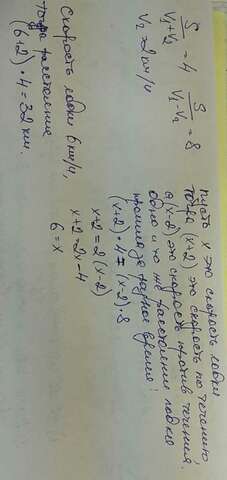 S/(V₁+V₂) = 4   S/(V₁-V₂) = 8
V₂ = 2 км/ч
пусть x это скорость лодки
тогда (x+2) это скорость по течению,
а (x-2) это скорость против течения.
одно и то же расстояние лодка
прошла за разное время!
(x+2)·4=(x-2)·8
x+2=2(x-2)
x+2=2x-4
6=x
Скорость лодки 6 км/ч,
тогда расстояние
(6+2)·4=32 км.